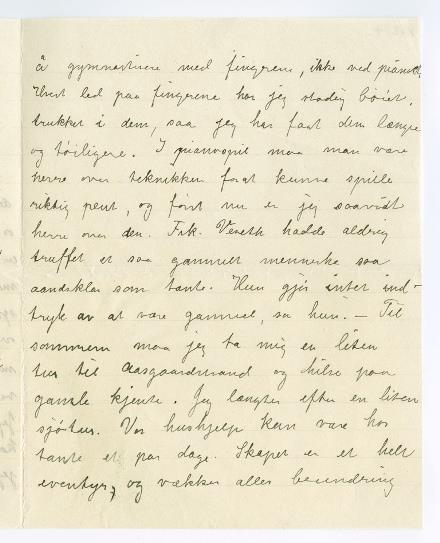 å gymnastisere med fingrene, ikke ved pianoet.
Hvert led paa fingrene har jeg stadig bøiet,
trukket i dem, saa jeg har faat dem længre
og tøieligere. I pianospil maa man være
herre over teknikken forat kunne spille
riktig pent, og først nu er jeg saavidt
herre over den. Frk. Vereth hadde aldrig
truffet et saa gammelt menneske saa
aandsklar som tante. Hun gjør intet ind-
tryk av at være gammel, sa hun. – Til
sommeren maa jeg ta mig en liten
tur til Aasgaardstrand og hilse paa
gamle kjente. Jeg længter efter en liten
sjøtur. Vor hushjelp kan være hos
tante et par dage. Skapet er et helt
eventyr, og vækker alles beundring